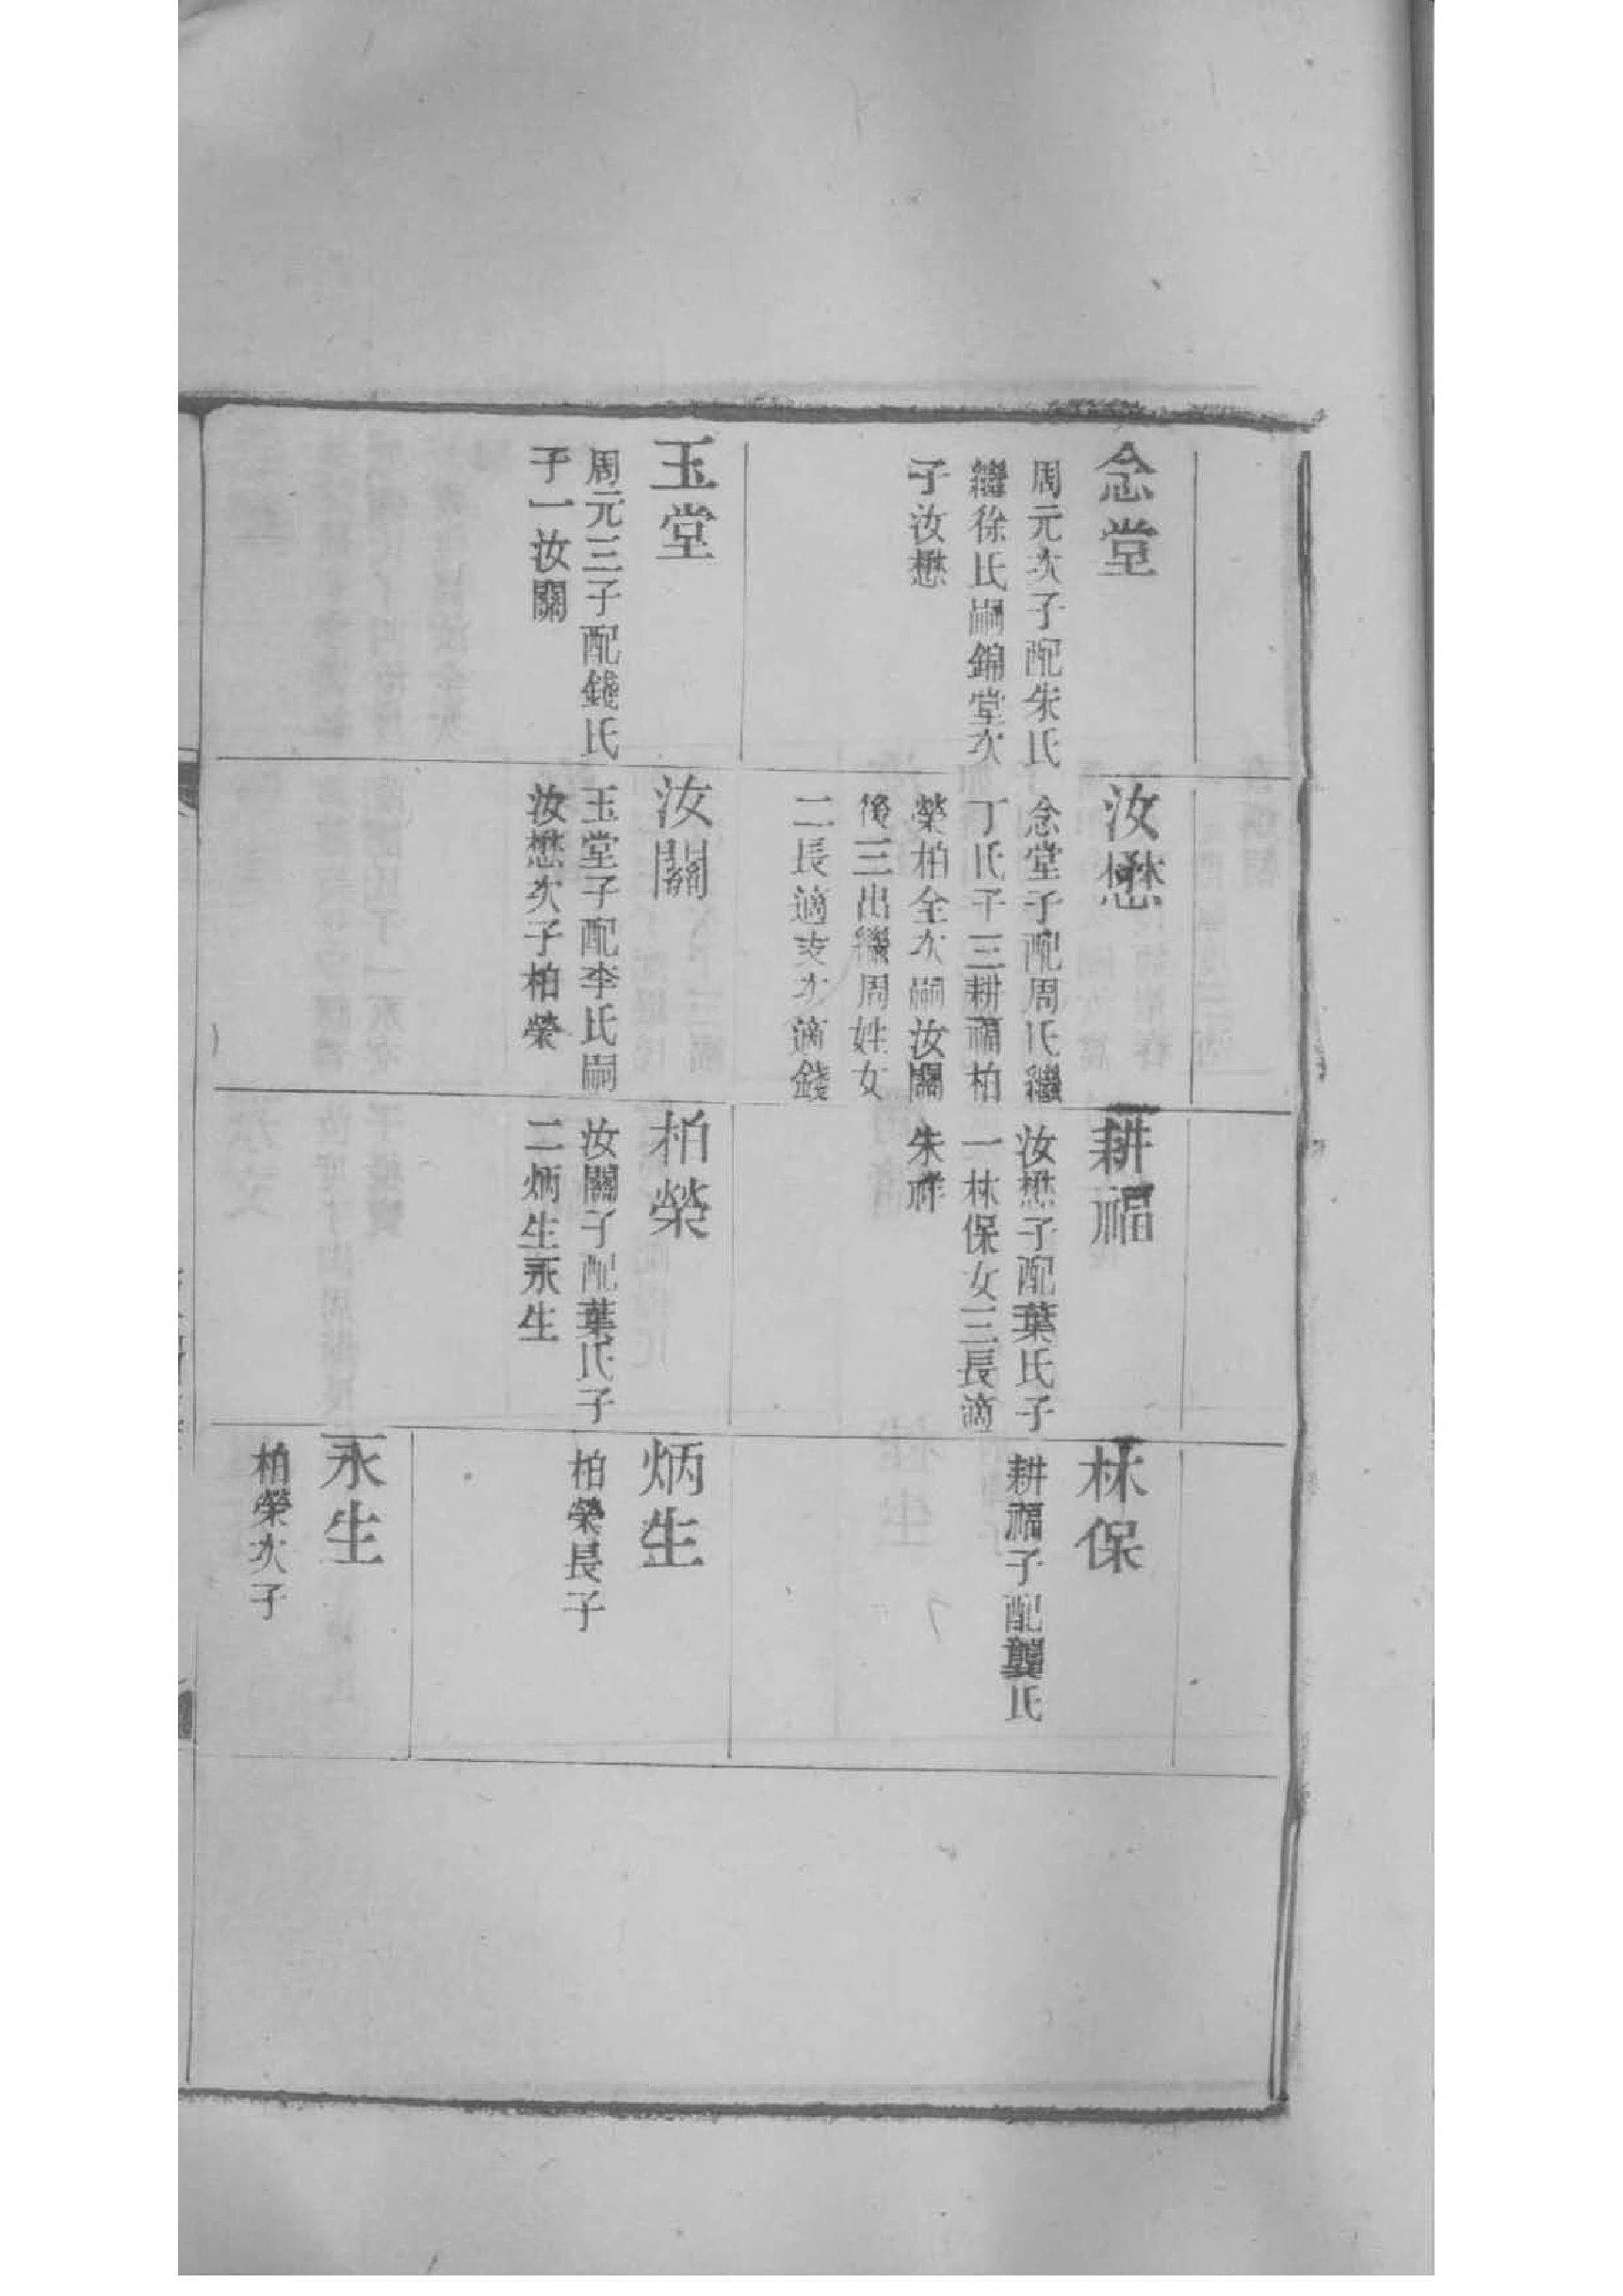 念堂
周元次子配朱氏
繼徐氏嗣錦堂次
子汝懋
玉堂
周元三子配錢氏
子一汝關
汝懋
念堂子配周氏繼
丁氏子三耕福柏
榮柏全次嗣汝關
後三出繼周姓女
二長適支次適錢
汝關
玉堂子配李氏嗣
汝懋次子柏榮
耕福
汝懋子配葉氏子
一林保女三長適
朱祥
柏榮
汝關子配葉氏子
二炳生永生
林保
耕福子配龔氏
炳生
柏榮長子
永生
柏榮次子